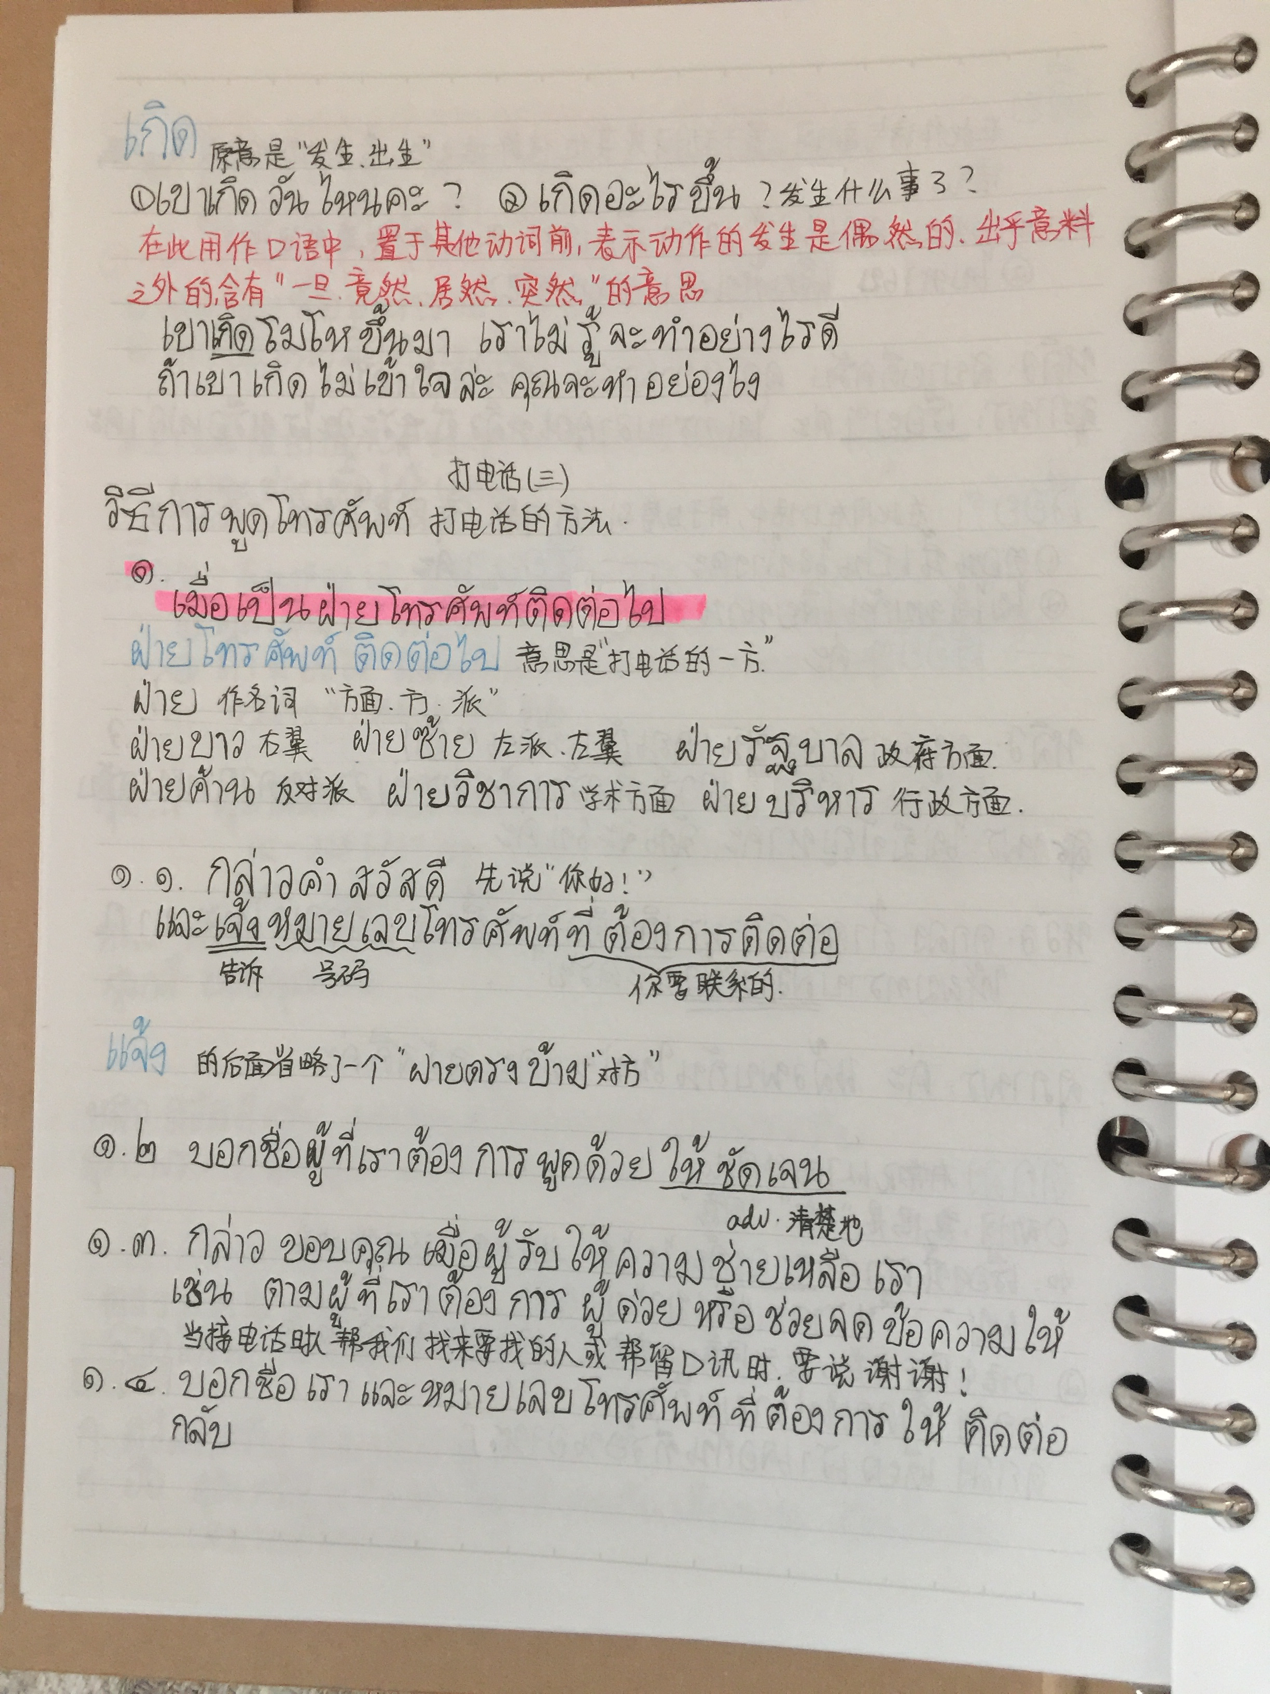 เกิด 原意是"发生、出生"
①เขาเกิดวันไหนคะ? ②เกิดอะไรขึ้น?发生什么事了?
在此用作口语中,置于其他动词前,表示动作的发生是偶然的、出乎意料
之外的,含有"一旦、竟然、居然、突然"的意思
เขาเกิดโมโหขึ้นมา เราไม่รู้จะทำอย่างไรดี
ถ้าเขาเกิดไม่เข้าใจล่ะ คุณจะหาอย่องไง
打电话(三)
วิธีการพูดโทรศัพท์ 打电话的方法.
๑.
เมื่อเป็นฝ่ายโทรศัพท์ติดต่อไป
ฝ่ายโทรศัพท์ติดต่อไป 意思是"打电话的一方."
ฝ่าย 作名词 "方面、方、派"
ฝ่ายขาว 右翼 ฝ่ายซ้าย 左派、左翼 ฝ่ายรัฐบาล 政府方面.
ฝ่ายค้าน 反对派 ฝ่ายวิชาการ 学术方面 ฝ่ายบริหาร 行政方面.
๑.๑. กล่าวคำสวัสดี 先说"你好!"
และแจ้งหมายเลขโทรศัพท์ที่ต้องการติดต่อ
告诉 号码 你要联系的.
แจ้ง 的后面省略了一个"ฝ่ายตรงข้าม"对方"
๑.๒ บอกชื่อผู้ที่เราต้องการพูดด้วยให้ชัดเจน
adv. 清楚地
๑.๓. กล่าวขอบคุณเมื่อผู้รับให้ความช่ายเหลือเรา
เช่น ตามผู้ที่เราต้องการผู้ด่วยหรือช่วยจดข้อความให้
当接电话时人帮我们找来要找的人或帮留口讯时,要说谢谢!
๑.๔. บอกชื่อเราและหมายเลขโทรศัพท์ที่ต้องการให้ติดต่อ
กลับ